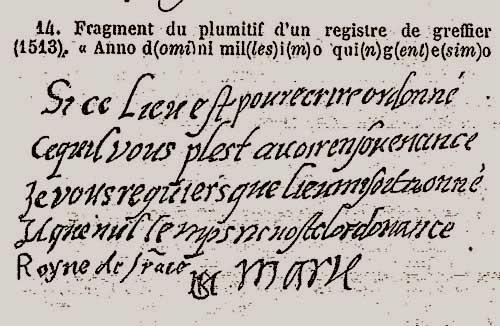 14. Fragment du plumitif d'un registre de greffier
(1513). « Anno d(omi)ni mil(les)i(m)o qui(n)g(ent)e(sim)o
Si ce Lieu est pour ecrire ordonné
Ce quil vous plest auoir en souuenance
Je vous requiers que lieu mi soit donné
Et que nul temps nen oste lordonance
Royne de france Marie